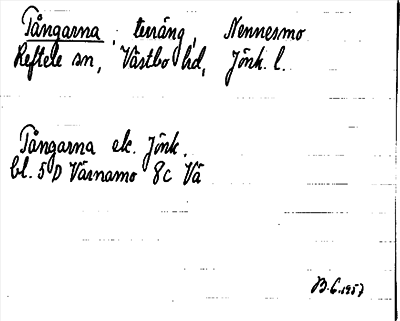 Tångarna, terräng, Nennesmo
Reftele sn, Västbo hd, Jönk. l.
Tångarna ek. Jönk.
bl. 5 D Värnamo 8c Vä
B.G. 1957